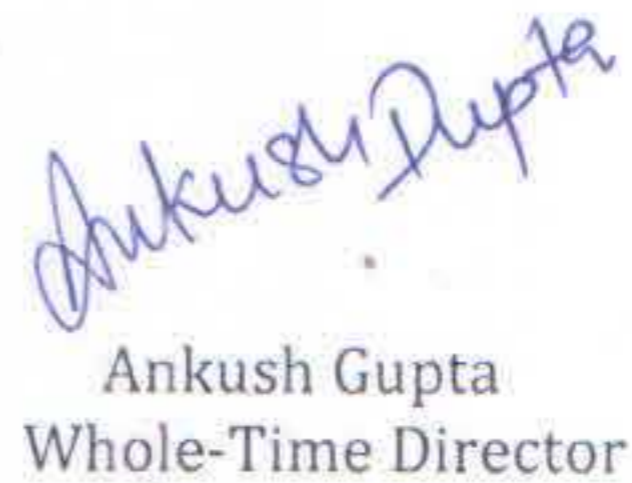 Ankush Gupta
Ankush Gupta
Whole-Time Director